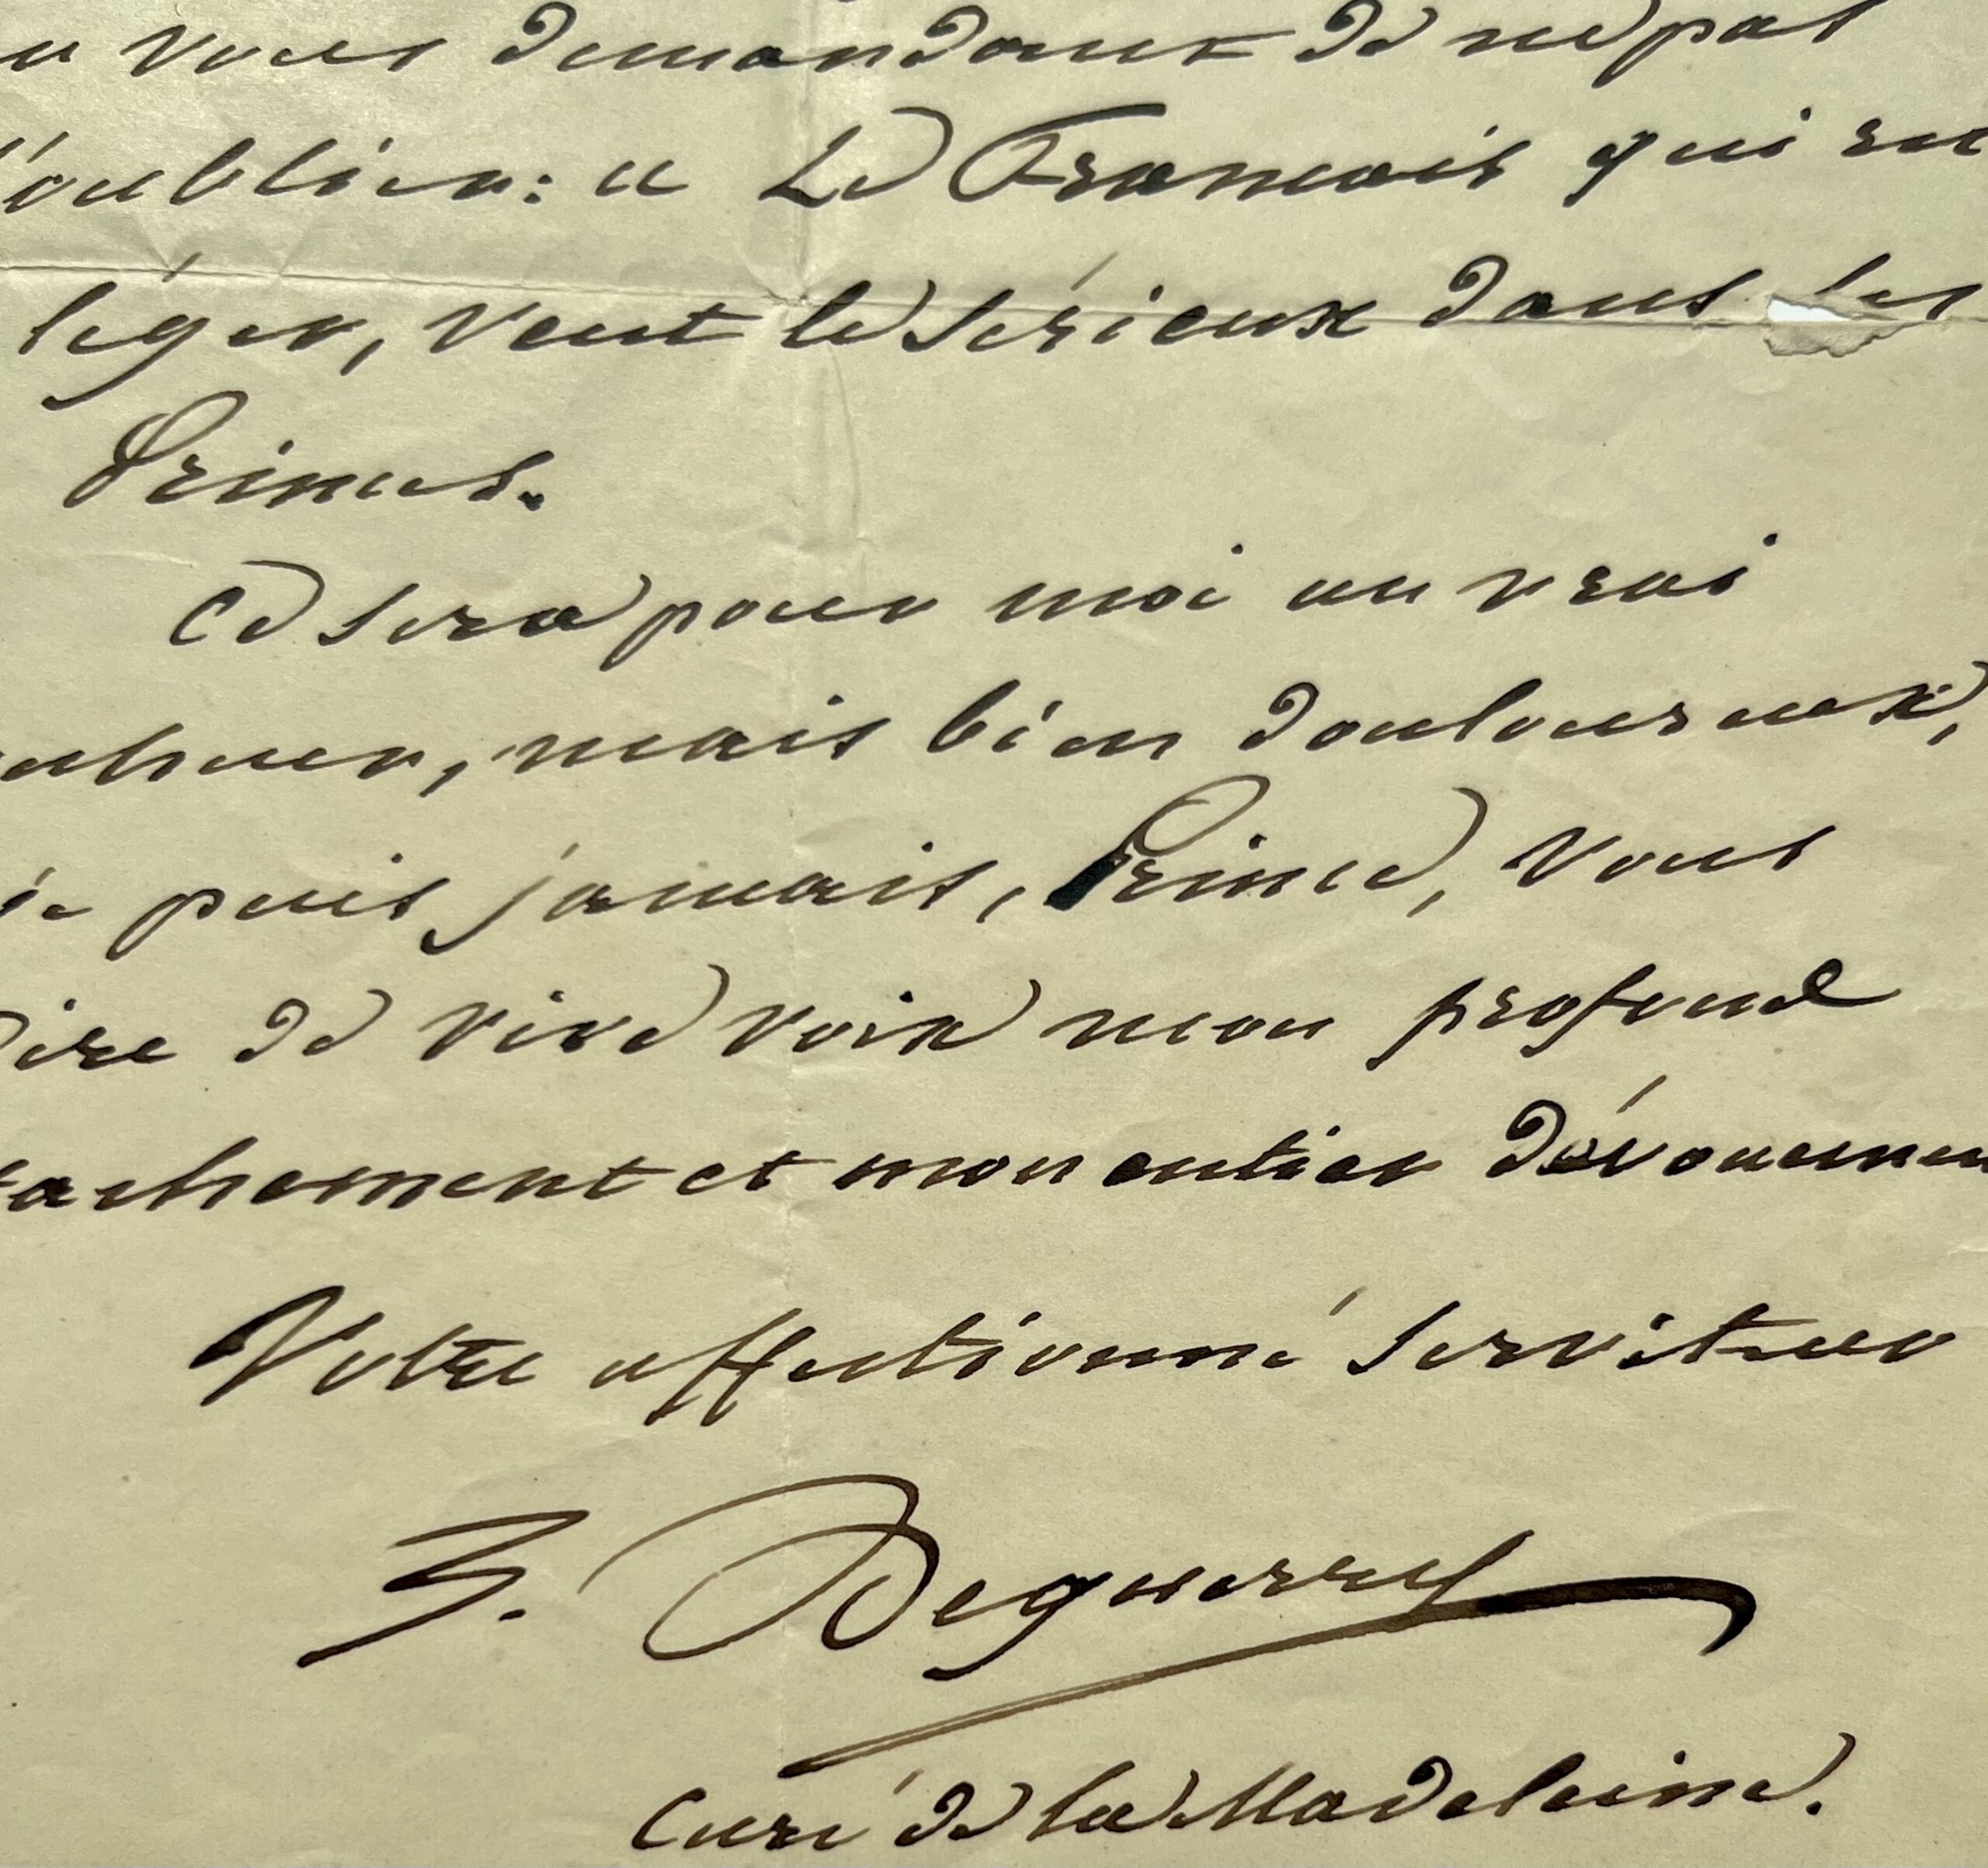 vous demandant de ne pas
l'oublier: « Le Francais qui est
léger, veut le sérieux dans les
Princes.
Ce sera pour moi un vrai
nheur, mais bien douloureux,
si je puis jamais, Prince, vous
dire de vive voix mon profond
tachement et mon entier dévouemen
Votre affectionné serviteur
J. Deguerry
Curé de la Madeleine.